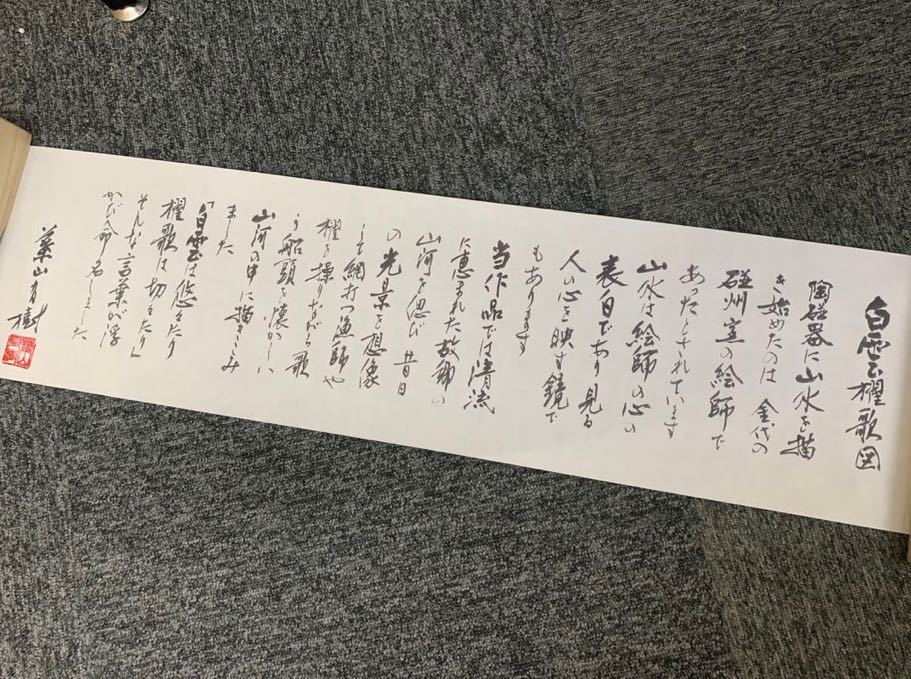 白雲櫂歌図
陶磁器に山水を描
き始めたのは 金代の
磁州窯の絵師で
あったとされています
山水は絵師の心の
表白であり見る
人の心を映す鏡で
もあります
当作品では清流
に恵まれた故郷の
山河を偲び 昔日
の光景を想像
して網打つ漁師や
櫂を操りながら歌
う船頭を懐かしい
山河の中に描きこみ
ました
「白雲は悠々たり
櫂歌は切々たり」
そんな言葉が浮
かび命名しました
葉山有樹